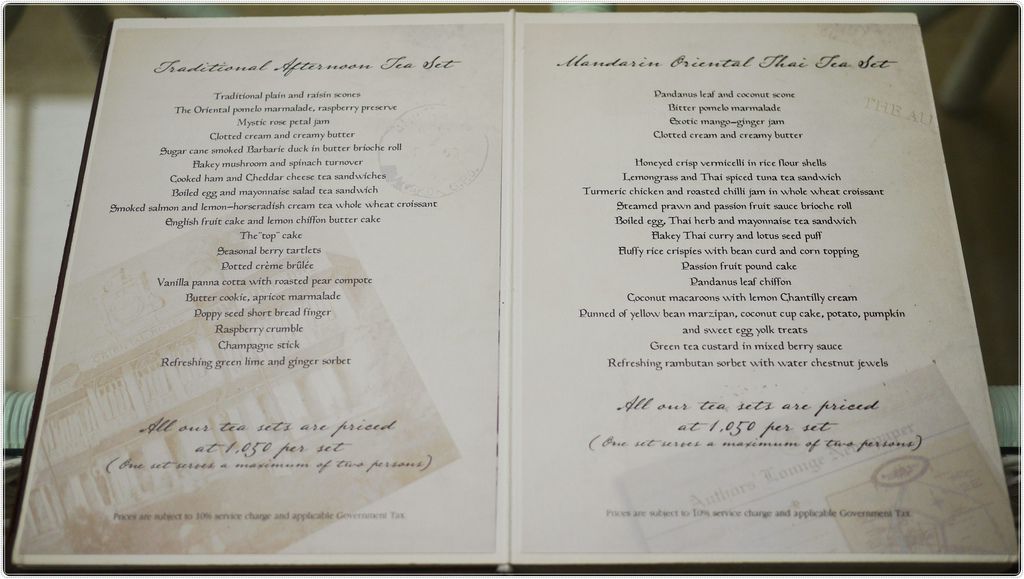 Traditional Afternoon Tea Set
Traditional plain and raisin scones
The Oriental pomelo marmalade, raspberry preserve
Mystic rose petal jam
Clotted cream and creamy butter
Sugar cane smoked Barbarie duck in butter brioche roll
Flakey mushroom and spinach turnover
Cooked ham and Cheddar cheese tea sandwiches
Boiled egg and mayonnaise salad tea sandwich
Smoked salmon and lemon-horseradish cream tea whole wheat croissant
English fruit cake and lemon chiffon butter cake
The "top" cake
Seasonal berry tartlets
Potted crème brûlée
Vanilla panna cotta with roasted pear compote
Butter cookie, apricot marmalade
Poppy seed short bread finger
Raspberry crumble
Champagne stick
Refreshing green lime and ginger sorbet
All our tea sets are priced
at 1,050 per set
(One set serves a maximum of two persons)
Prices are subject to 10% service charge and applicable Government Tax
Mandarin Oriental Thai Tea Set
THE AU
Pandanus leaf and coconut scone
Bitter pomelo marmalade
Exotic mango-ginger jam
Clotted cream and creamy butter
Honeyed crisp vermicelli in rice flour shells
Lemongrass and Thai spiced tuna tea sandwich
Turmeric chicken and roasted chilli jam in whole wheat croissant
Steamed prawn and passion fruit sauce brioche roll
Boiled egg, Thai herb and mayonnaise tea sandwich
Flakey Thai curry and lotus seed puff
Fluffy rice crispies with bean curd and corn topping
Passion fruit pound cake
Pandanus leaf chiffon
Coconut macaroons with lemon Chantilly cream
Punned of yellow bean marzipan, coconut cup cake, potato, pumpkin
and sweet egg yolk treats
Green tea custard in mixed berry sauce
Refreshing rambutan sorbet with water chestnut jewels
All our tea sets are priced
at 1,050 per set
(One set serves a maximum of two persons)
Authors Lounge
Prices are subject to 10% service charge and applicable Government Tax